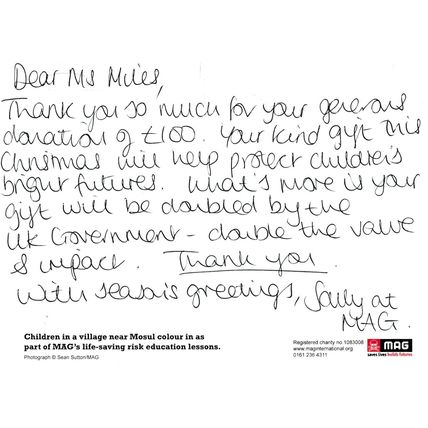 Dear Ms Miles,
Thank you so much for your generous
donation of £100. Your kind gift this
Christmas will help protect children's
bright futures. What's more is your
gift will be doubled by the
UK Government - double the value
& impact. Thank you
With season's greetings, Sally at
MAG.
Children in a village near Mosul colour in as
part of MAG's life-saving risk education lessons.
Photograph © Sean Sutton/MAG
Registered charity no.1083008
www.maginternational.org
0161 236 4311
MAG
saves lives builds futures